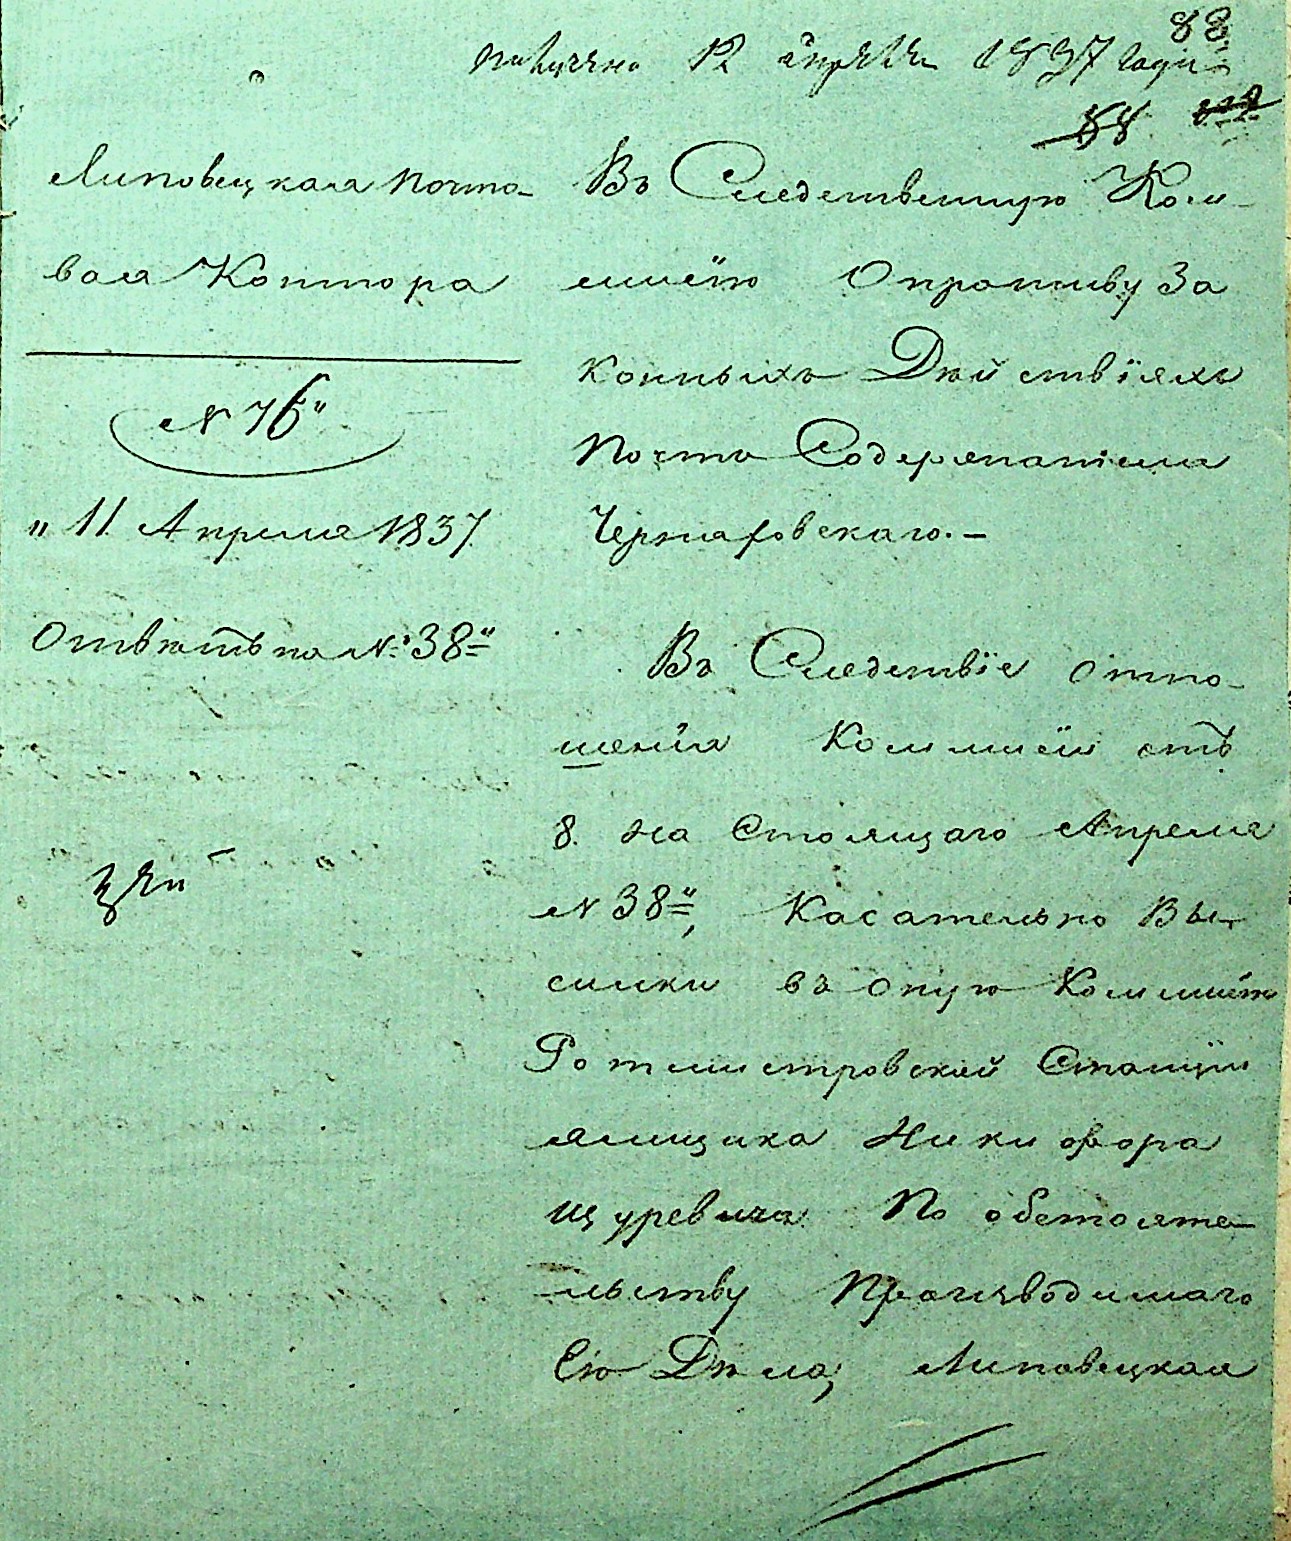 88
получено 12 апреля 1837 года
88
Липовецкая Почто-
вая Контора
№ 76"
" 11 Апреля 1837
Отвѣтъ на №: 38"
Въ Следственную Ком-
миссїю О противу За
конныхъ Дѣйствїяхъ
Почто Содержателя
Черняховскаго.-
Въ Следствїе отно-
шенїя Коммисїи отъ
8. на Стоящаго Апреля
№ 38", Касательно Вы-
силки въ оную Коммисїю
Ротмистровской Станцїи
ямщика Никифора
Щуревича По обстояте-
льству Производимаго
Ею Дѣла, Липовецкая